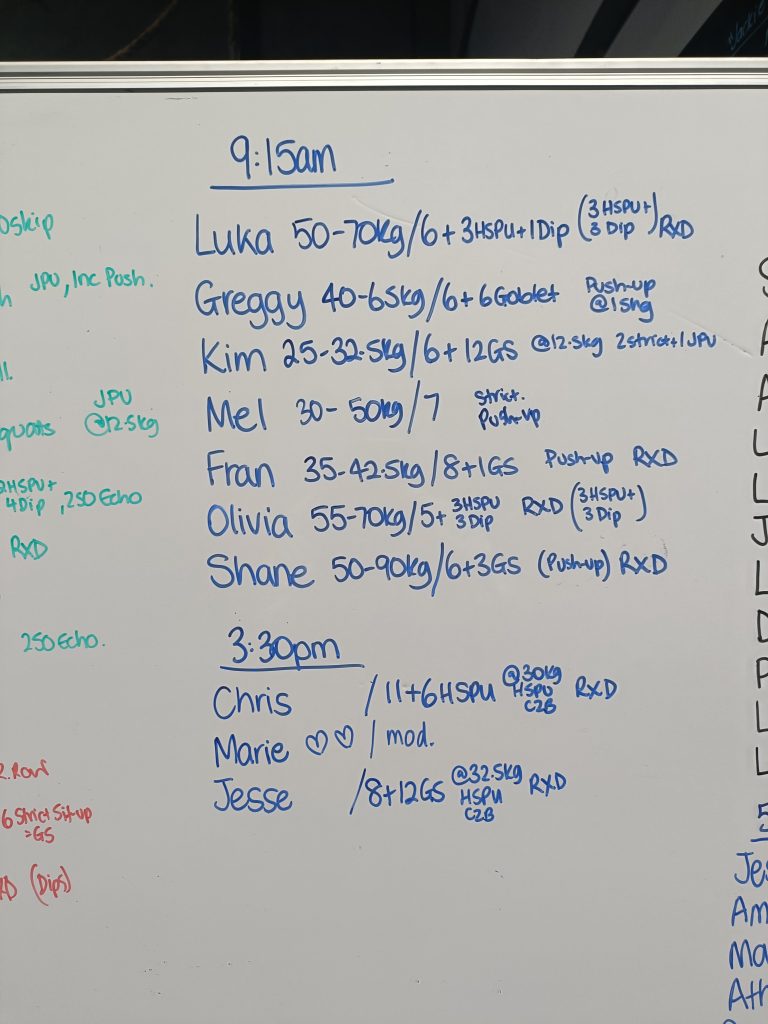 9:15am
Luka 50-70kg/6+3HSPU+1Dip (3HSPU+ 3Dip) RXD
Greggy 40-65kg/6+6Goblet Push-up @15kg
Kim 25-32.5kg/6+12GS @12.5kg 2strict+1JPU
Mel 30-50kg/7 Strict. Push-up
Fran 35-42.5kg/8+1GS Push-up RXD
Olivia 55-70kg/5+ 3HSPU 3Dip RXD (3HSPU+ 3Dip)
Shane 50-90kg/6+3GS (Push-up) RXD
3:30pm
Chris /11+6HSPU @30kg HSPU C2B RXD
Marie ♡♡ / mod.
Jesse /8+12GS @32.5kg HSPU C2B RXD
JPU, Inc Push.
JPU
@12.5kg
2HSPU+
4Dip, 250Echo
RXD
250Echo.
6 Strict Sit-up
=GS
(Dips)